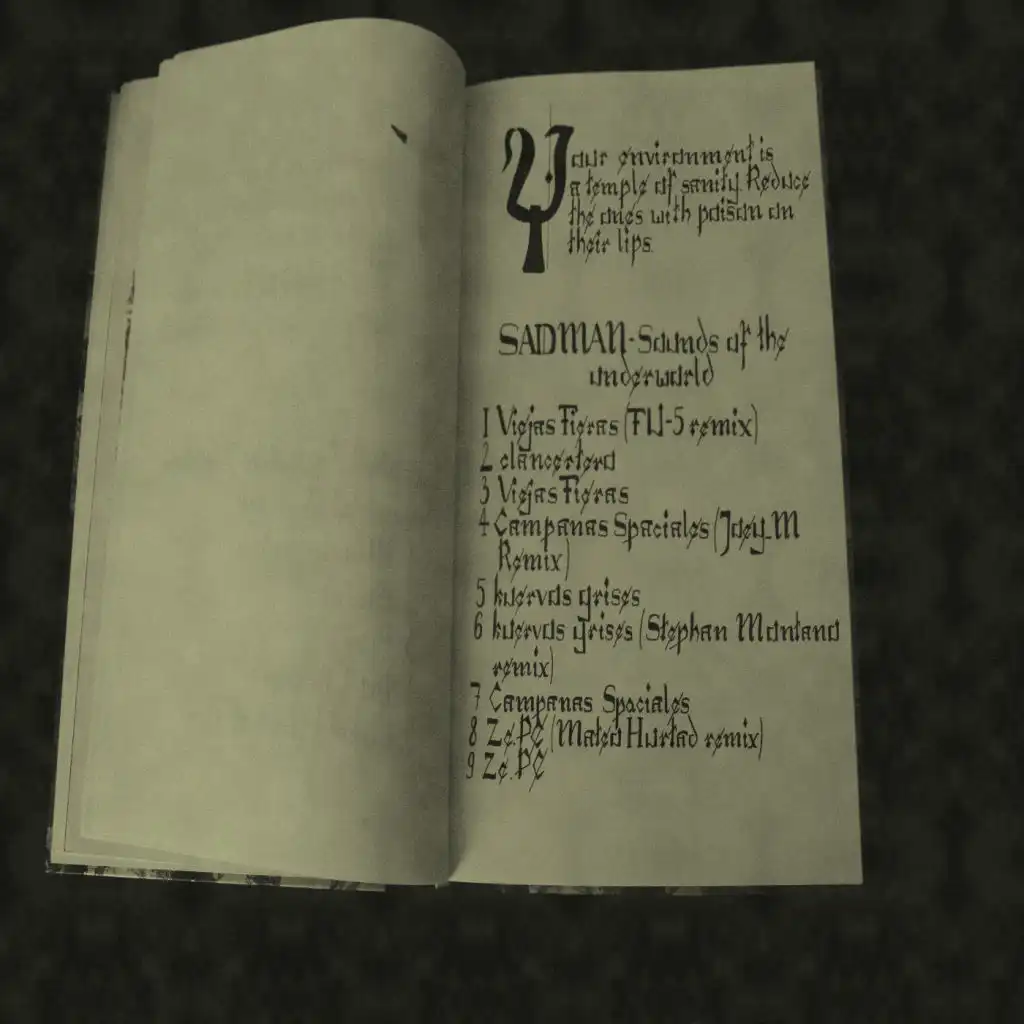 Your environment is
a temple of sanity. Reduce
the ones with poison on
their lips.
SADMAN-Sounds of the
underworld
1 Viejas Fieras (FU-5 remix)
2 clancestero
3 Viejas Fieras
4 Campanas Spaciales (Joey_M
Remix)
5 kuervos grises
6 kuervos grises (Stephan Montano
remix)
7 Campanas Spaciales
8 Ze.PE (Mateo Hurtad remix)
9 Ze.PE